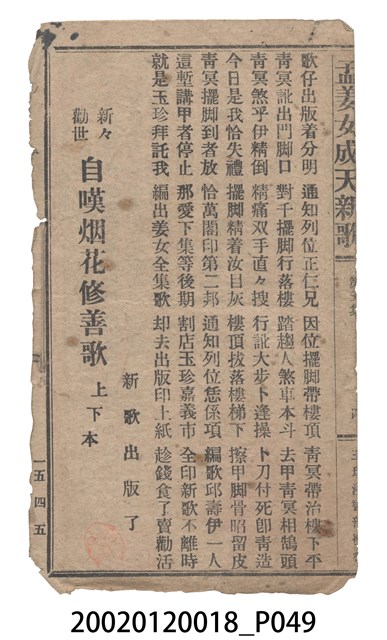 孟姜女成天新歌
歌仔出版着分明 通知列位正仁兄 因位擺脚帶樓頂 青冥帶治樓下平
青冥訛出門脚口 對千擺脚行落樓 踏趨人煞車本斗 去甲青冥相鵠頭
青冥煞乎伊精倒 精痛双手直々搜 行訛大步卜逢操 卜刀付死卽靑造
今日是我恰失禮 擺脚精着汝目灰 樓頂拔落樓梯下 擦甲脚骨昭留皮
青冥擺脚到者放 恰萬閣印第二邦 通知列位恁係項 編歌邱壽伊一人
這塹講甲者停止 那愛下集等後期 割店玉珍嘉義市 全印新歌不離時
就是玉珍拜託我 編出姜女全集歌 却去出版印上紙 趁錢食了賣勸活
新々
勸世
自嘆烟花修善歌 上下本
新歌出版了
一五四五
20020120018_P049